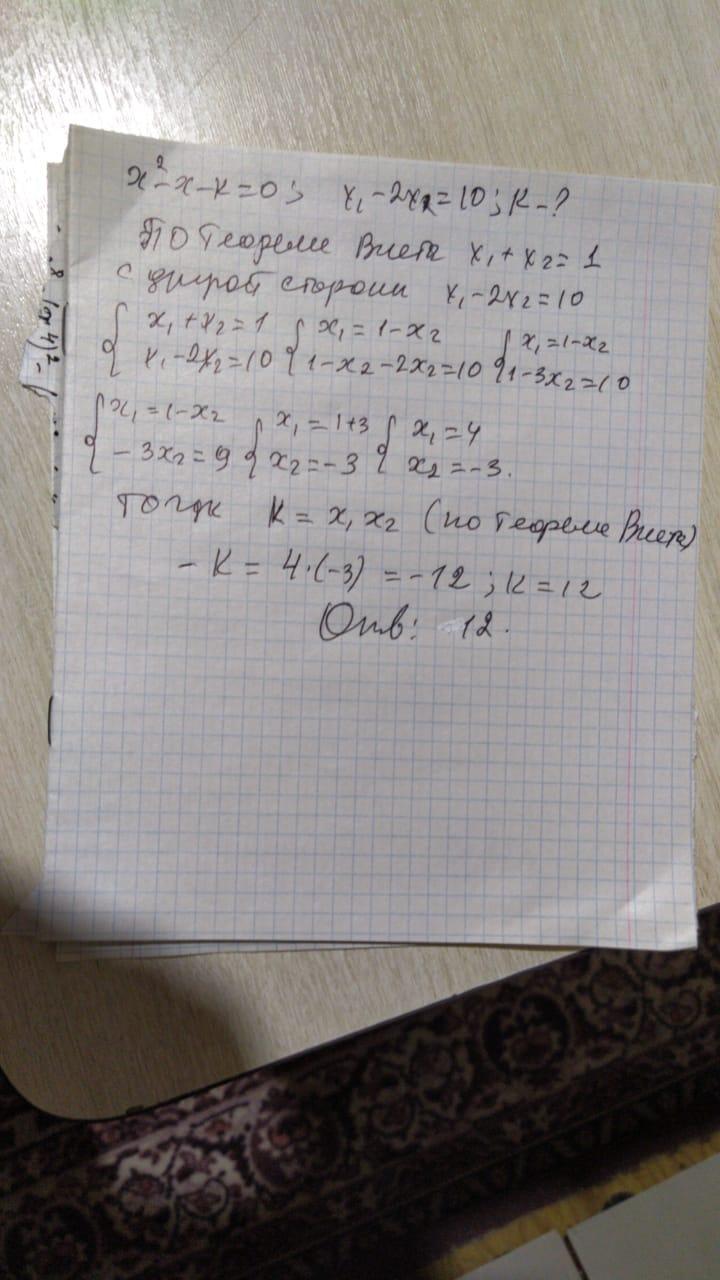 x²-x-k=0; x₁-2x₂=10; k-?
По теореме Виета x₁+x₂=1
с другой стороны x₁-2x₂=10
{ x₁+x₂=1 { x₁=1-x₂ { x₁=1-x₂
x₁-2x₂=10 1-x₂-2x₂=10 1-3x₂=10
{ x₁=1-x₂ { x₁=1+3 { x₁=4
-3x₂=9 x₂=-3 x₂=-3.
тогда k=x₁x₂ (по теореме Виета)
-k=4·(-3)=-12; k=12
Отв: 12.